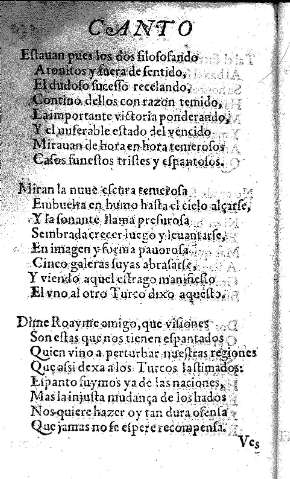 CANTO
Estauan pues los dos filosofando
Atonitos y fuera de sentido,
El dudoso sucesso recelando,
Contino dellos con razon temido,
La importante victoria ponderando,
Y el miserable estado del vencido
Mirauan de hora en hora temerosos
Casos funestos tristes y espantosos.
Miran la nuue escura temerosa
Embuelta en humo hasta el cielo alçarse,
Y la sonante llama presurosa
Sembrada crecer luego y leuantarse,
En imagen y forma pauorosa
Cinco galeras suyas abrasarse,
Y viendo aquel estrago manifiesto
El vno al otro Turco dixo aquesto.
Dime Roayme omigo, que visiones
Son estas que nos tienen espantados
Quien vino a perturbar nuestras regiones
Que assi dexa a los Turcos lastimados:
Espanto fuymos ya de las naciones,
Mas la injusta mudança de los hados
Nos quiere hazer oy tan dura ofensa
Que jamas no se espere recompensa.
Ves